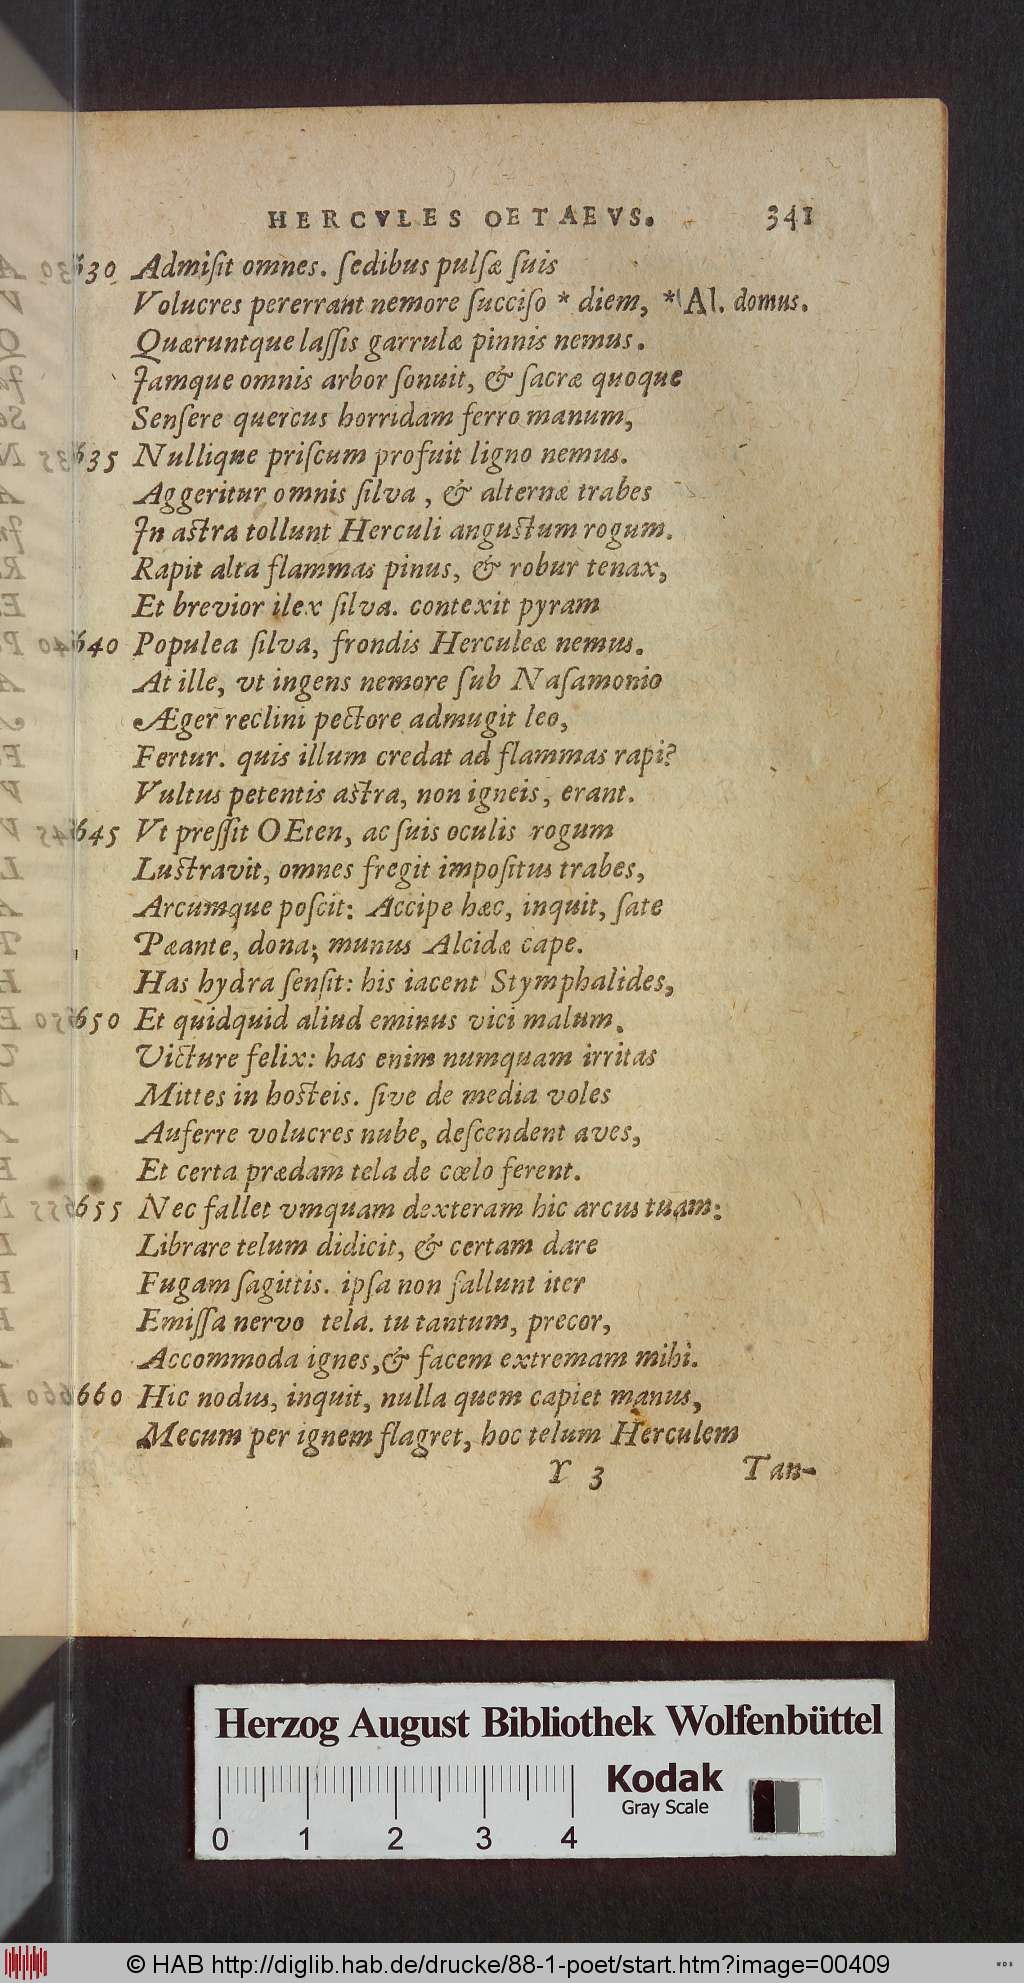 HERCVLES OETAEVS. 341
630 Admiſit omnes. ſedibus pulſæ ſuis
Volucres pererrant nemore ſucciſo * diem, * Al. domus.
Quæruntque laſſis garrulæ pinnis nemus.
Jamque omnis arbor ſonuit, & ſacræ quoque
Senſere quercus horridam ferro manum,
635 Nullique priſcum profuit ligno nemus.
Aggeritur omnis ſilva, & alternæ trabes
In aſtra tollunt Herculi anguſtum rogum.
Rapit alta flammas pinus, & robur tenax,
Et brevior ilex ſilva. contexit pyram
640 Populea ſilva, frondis Herculeæ nemus.
At ille, vt ingens nemore ſub Naſamonio
Æger reclini pectore admugit leo,
Fertur. quis illum credat ad flammas rapi?
Vultus petentis aſtra, non igneis, erant.
645 Vt preſſit OEten, ac ſuis oculis rogum
Luſtravit, omnes fregit impoſitus trabes,
Arcumque poſcit: Accipe hæc, inquit, ſate
Pæante, dona; munus Alcidæ cape.
Has hydra ſenſit: his iacent Stymphalides,
650 Et quidquid aliud eminus vici malum.
Victure felix: has enim numquam irritas
Mittes in hoſteis. ſive de media voles
Auferre volucres nube, deſcendent aves,
Et certa prædam tela de cœlo ferent.
655 Nec fallet vmquam dexteram hic arcus tuam:
Librare telum didicit, & certam dare
Fugam ſagittis. ipſa non fallunt iter
Emiſſa nervo tela. tu tantum, precor,
Accommoda ignes, & facem extremam mihi.
660 Hic nodus, inquit, nulla quem capiet manus,
Mecum per ignem flagret, hoc telum Herculem
Y 3 Tan-
Herzog August Bibliothek Wolfenbüttel
Kodak
Gray Scale
0 1 2 3 4
© HAB http://diglib.hab.de/drucke/88-1-poet/start.htm?image=00409